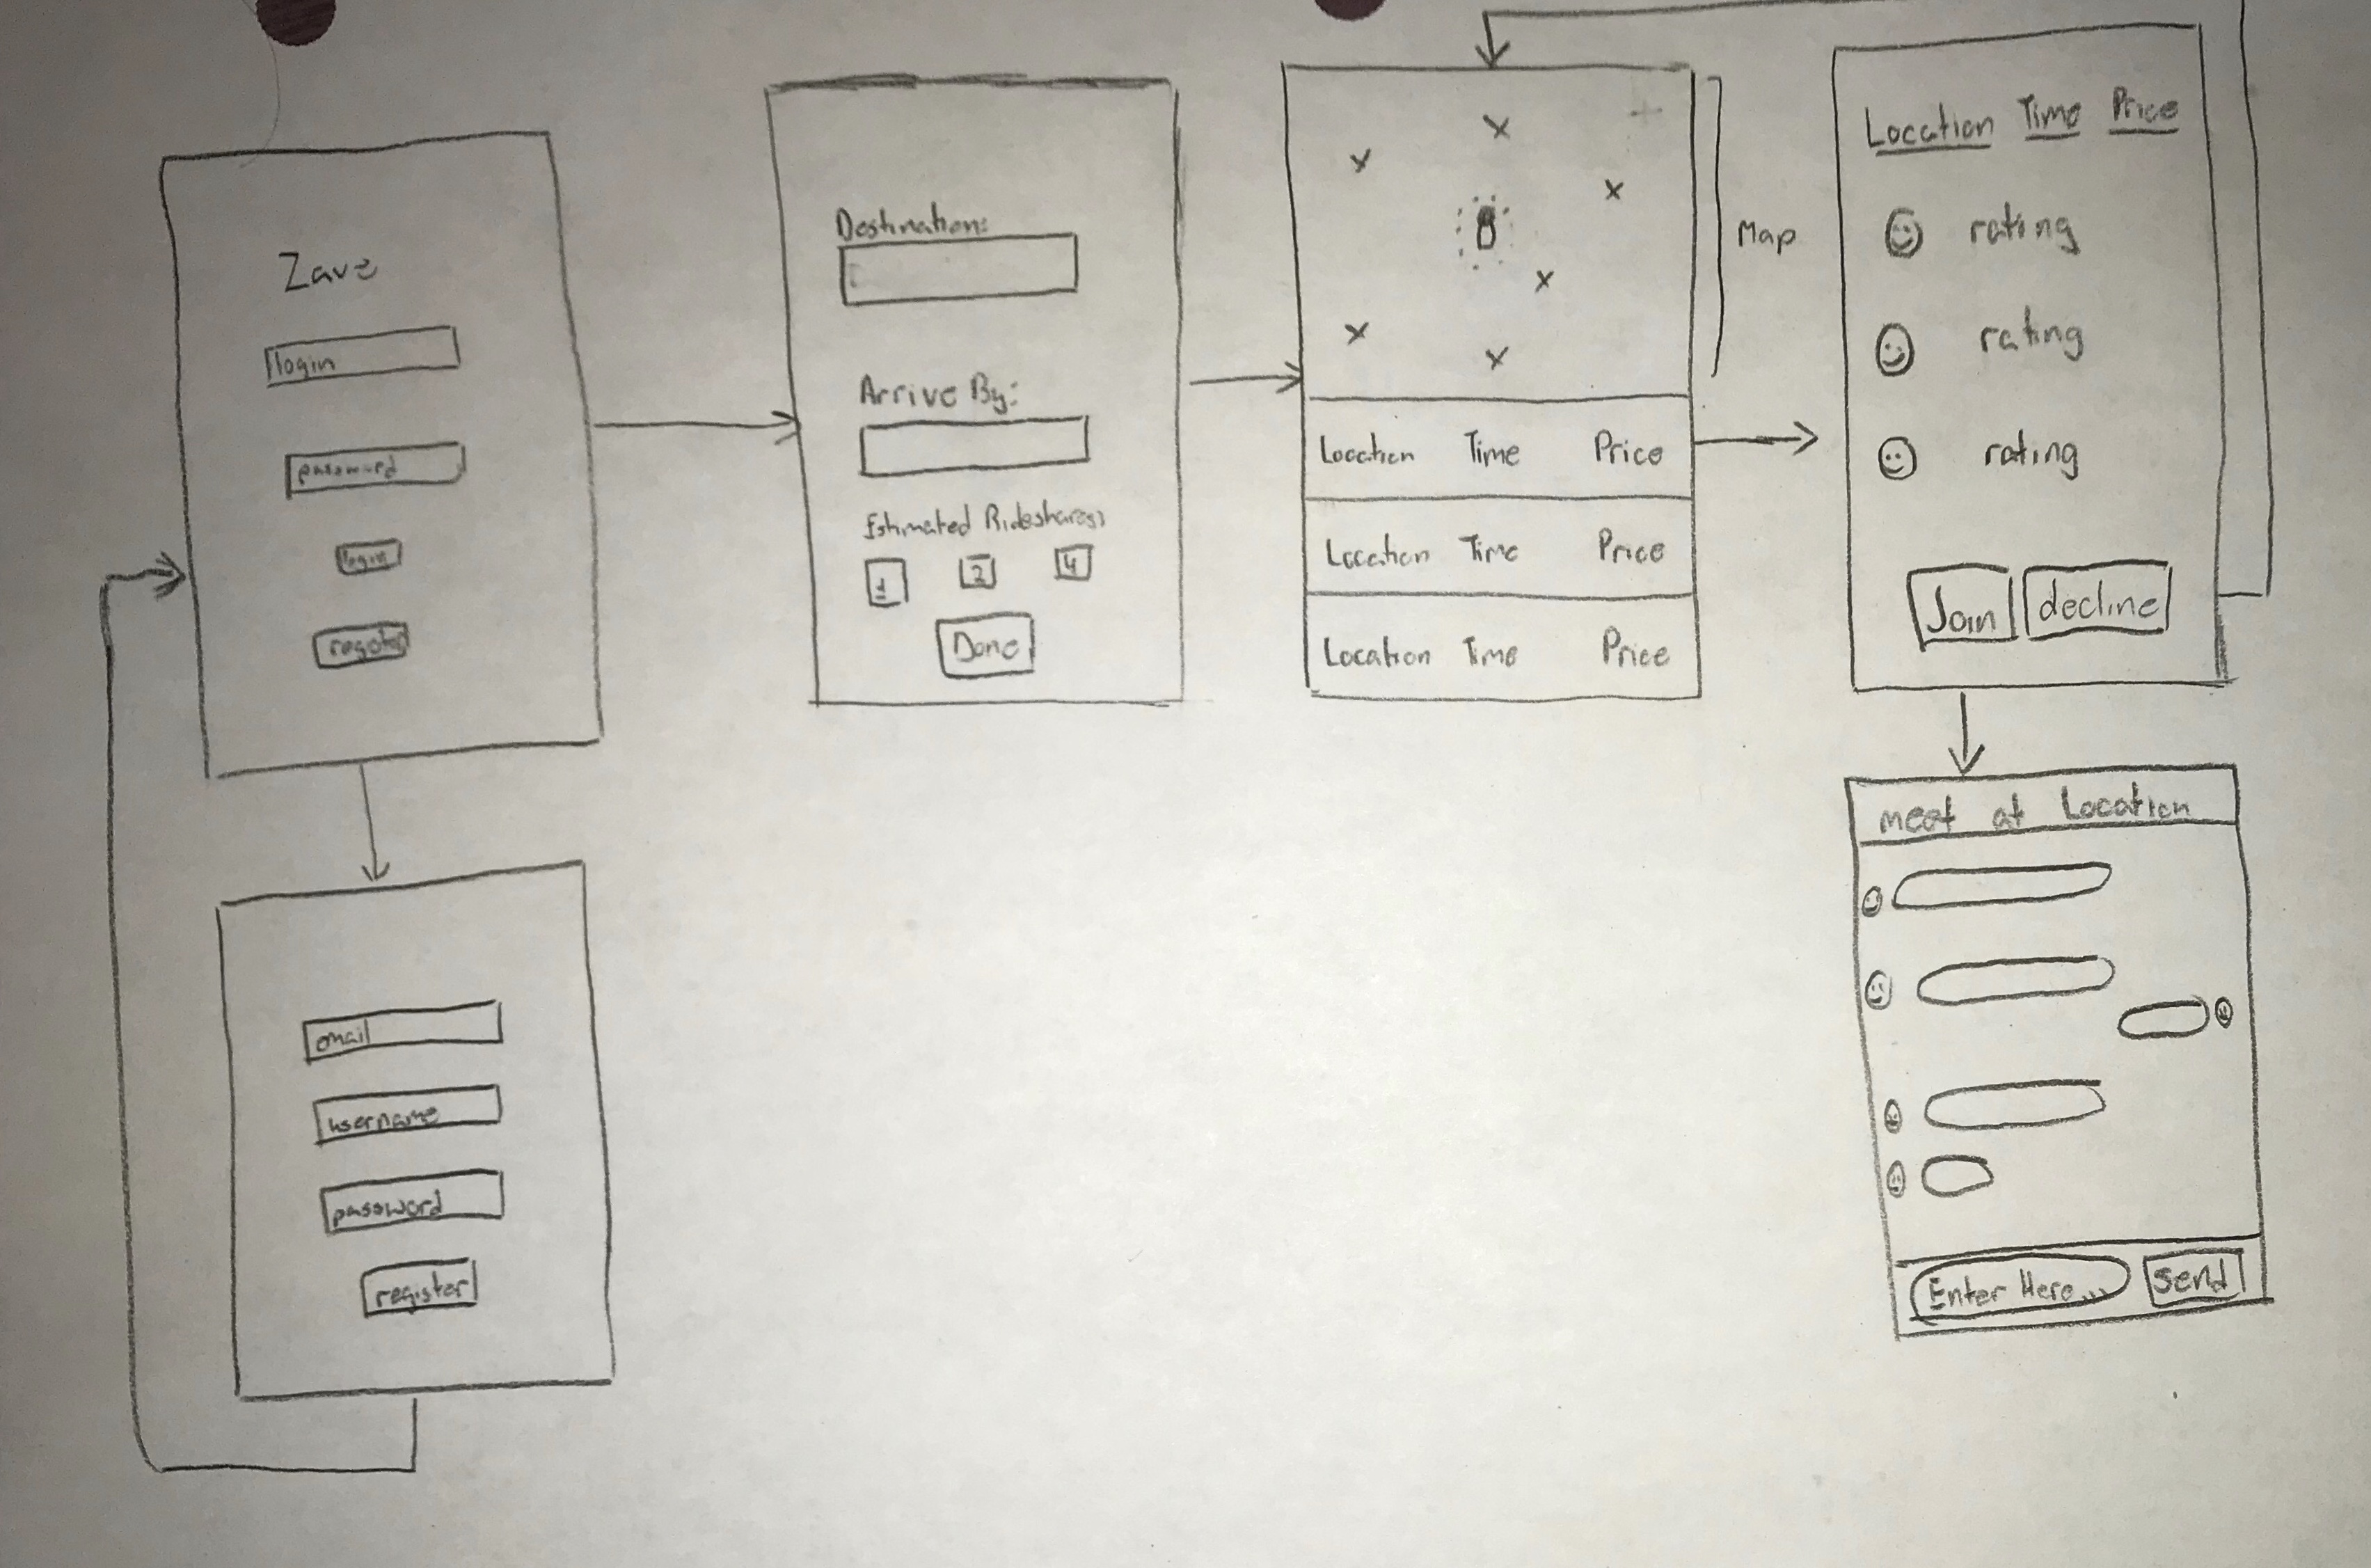 Zave
login
password
login
register
email
username
password
register
Destination:
Arrive By:
Estimated Rideshares:
1 2 4
Done
Map
Location Time Price
Location Time Price
Location Time Price
Location Time Price
rating
rating
rating
Join decline
meet at Location
Enter Here... Send